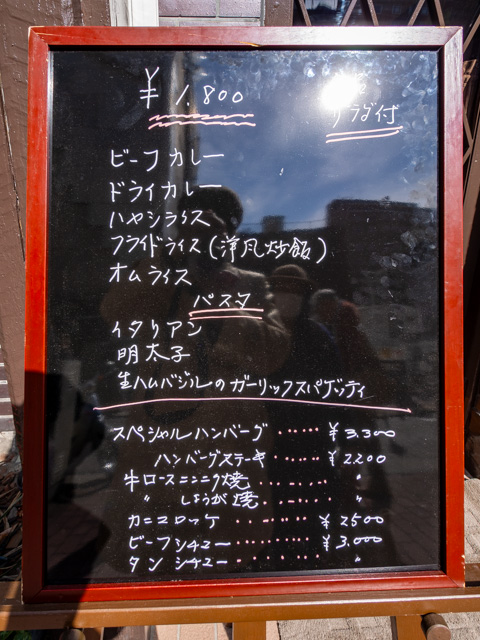 ¥1,800 サラダ付
ビーフカレー
ドライカレー
ハヤシライス
フライドライス(洋風炒飯)
オムライス
パスタ
イタリアン
明太子
生ハムバジルのガーリックスパゲッティ
スペシャルハンバーグ ‥‥‥ ¥3,300
ハンバーグステーキ ‥‥‥ ¥2,200
牛ロースニンニク焼 ‥‥‥ 〃
〃 しょうが焼 ‥‥‥ 〃
カニコロッケ ‥‥‥ ¥2500
ビーフシチュー ‥‥‥ ¥3,000
タンシチュー ‥‥‥ 〃